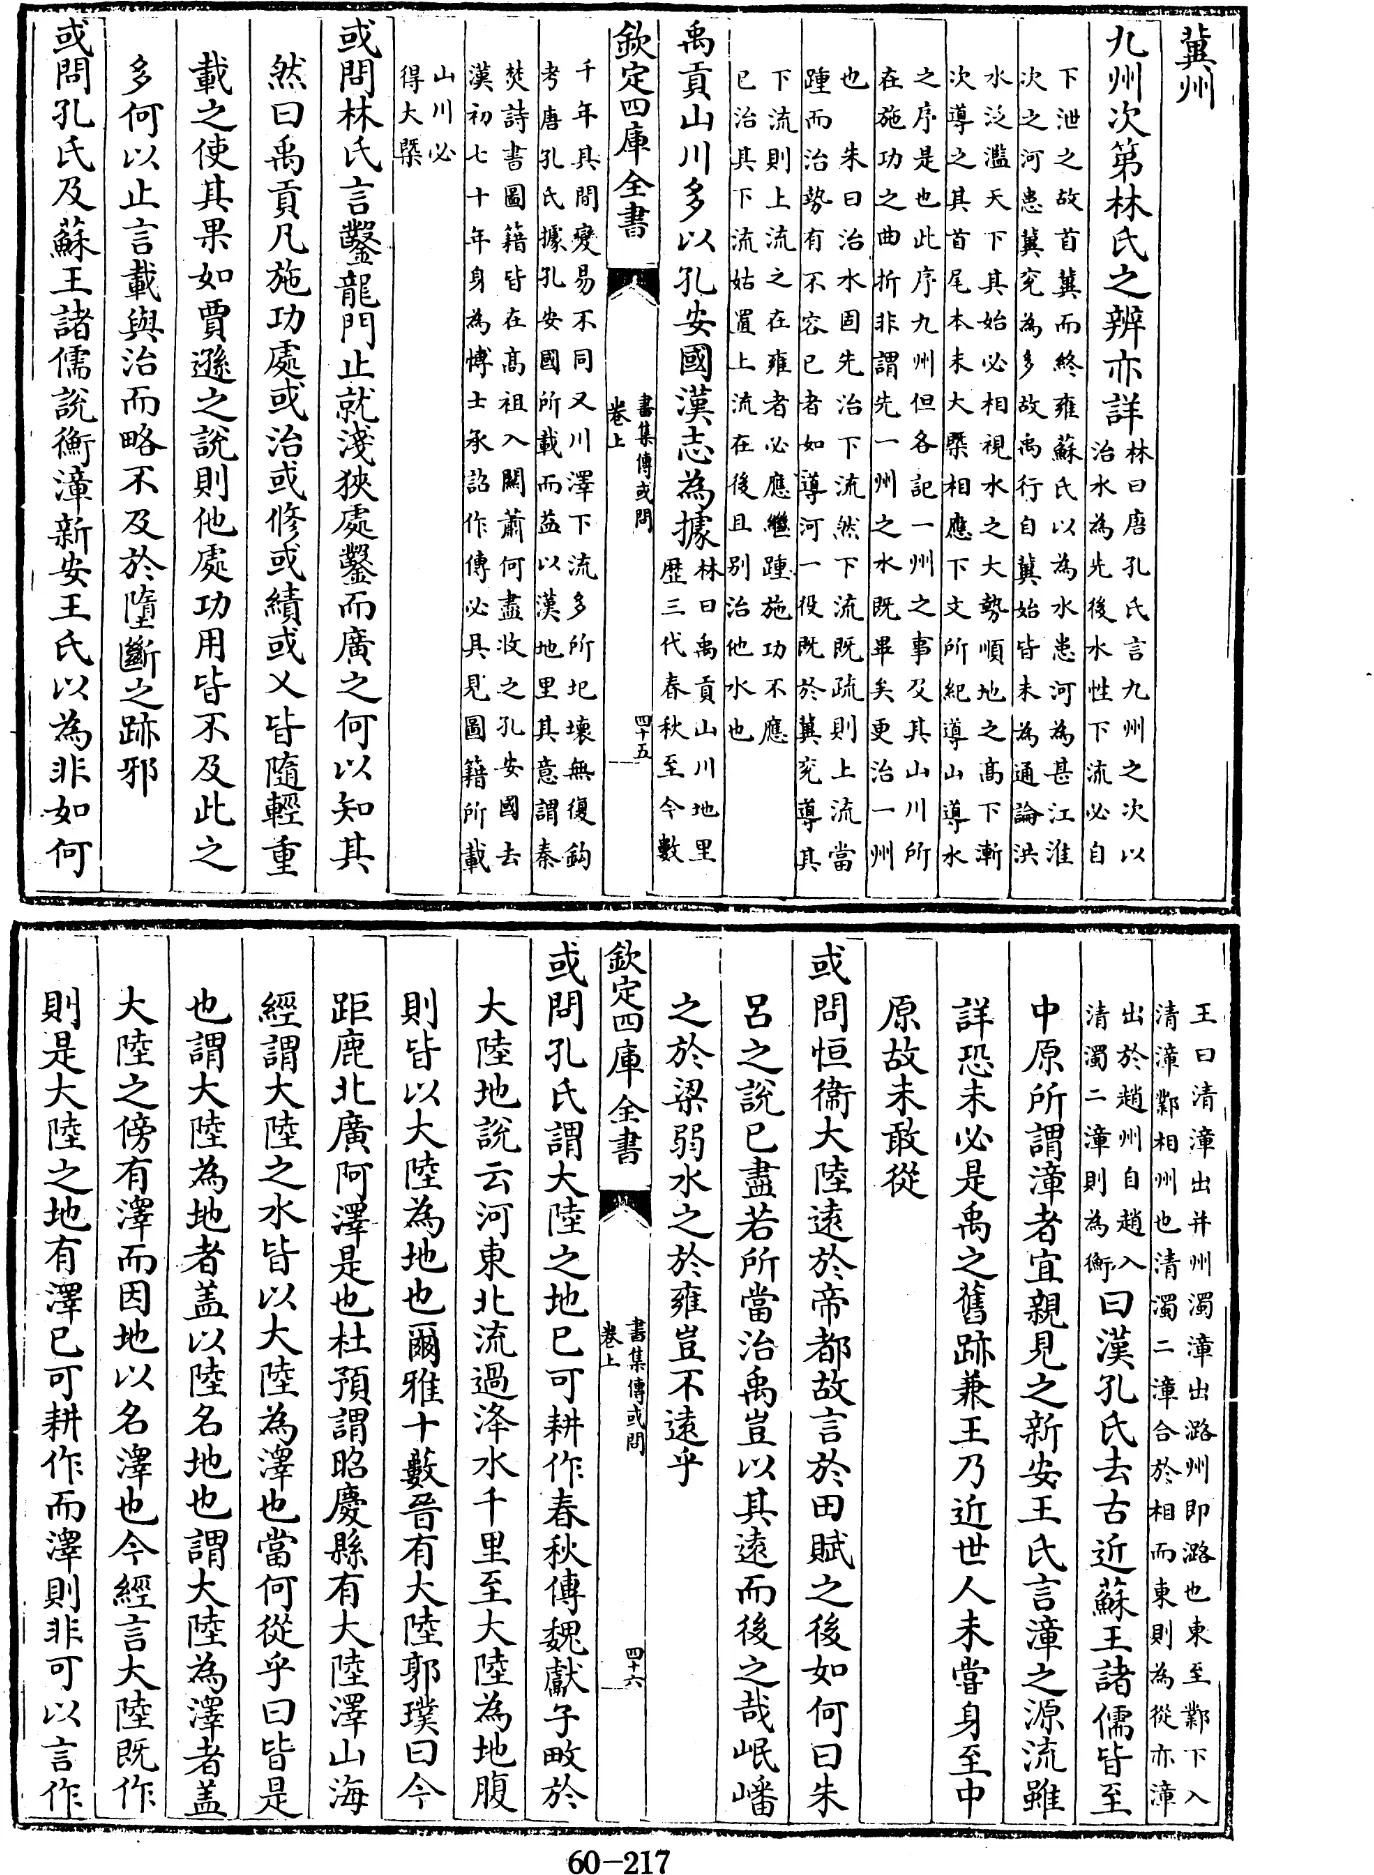 冀州
九州次第林氏之辨亦詳林曰唐孔氏言九州之次以
治水為先後水性下流必自
下泄之故首冀而終雍蘇氏以為水患河為甚江淮
次之河患冀兖為多故禹行自冀始皆未為通論洪
水泛濫天下其始必相視水之大勢順地之髙下漸
次導之其首尾本末大槩相應下文所紀導山導水
之序是也此序九州但各記一州之事及其山川所
在施功之曲折非謂先一州之水既畢矣更治一州
也　朱曰治水固先治下流然下流既疏則上流當
踵而治勢有不容已者如導河一役既於冀兖導其
下流則上流之在雍者必應繼踵施功不應
已治其下流姑置上流在後且别治他水也
禹貢山川多以孔安國漢志為據林曰禹貢山川地里
歴三代春秋至今數
欽定四庫全書
書集傳或問
卷上
四十五
千年其間變易不同又川澤下流多所圮壞無復鈎
考唐孔氏據孔安國所載而益以漢地里其意謂秦
焚詩書圖籍皆在髙祖入關蕭何盡收之孔安國去
漢初七十年身為博士承詔作傳必具見圖籍所載
山川必
得大槩
或問林氏言鑿龍門止就淺狹處鑿而廣之何以知其
然曰禹貢凡施功處或治或修或績或乂皆隨輕重
載之使其果如賈遜之說則他處功用皆不及此之
多何以止言載與治而略不及於隳斷之跡邪
或問孔氏及蘇王諸儒說衡漳新安王氏以為非如何
王曰清漳出并州濁漳出潞州即潞也東至鄴下入
清漳鄴相州也清濁二漳合於相而東則為從亦漳
出於趙州自趙入
清濁二漳則為衡曰漢孔氏去古近蘇王諸儒皆至
中原所謂漳者宜親見之新安王氏言漳之源流雖
詳恐未必是禹之舊跡兼王乃近世人未嘗身至中
原故未敢從
或問恒衞大陸遠於帝都故言於田賦之後如何曰朱
呂之說已盡若所當治禹豈以其遠而後之哉岷嶓
之於梁弱水之於雍豈不遠乎
欽定四庫全書
書集傳或問
卷上
四十六
或問孔氏謂大陸之地已可耕作春秋傳魏獻子畋於
大陸地說云河東北流過洚水千里至大陸為地腹
則皆以大陸為地也爾雅十藪晉有大陸郭璞曰今
距鹿北廣阿澤是也杜預謂昭慶縣有大陸澤山海
經謂大陸之水皆以大陸為澤也當何從乎曰皆是
也謂大陸為地者盖以陸名地也謂大陸為澤者盖
大陸之傍有澤而因地以名澤也今經言大陸既作
則是大陸之地有澤已可耕作而澤則非可以言作
60-217